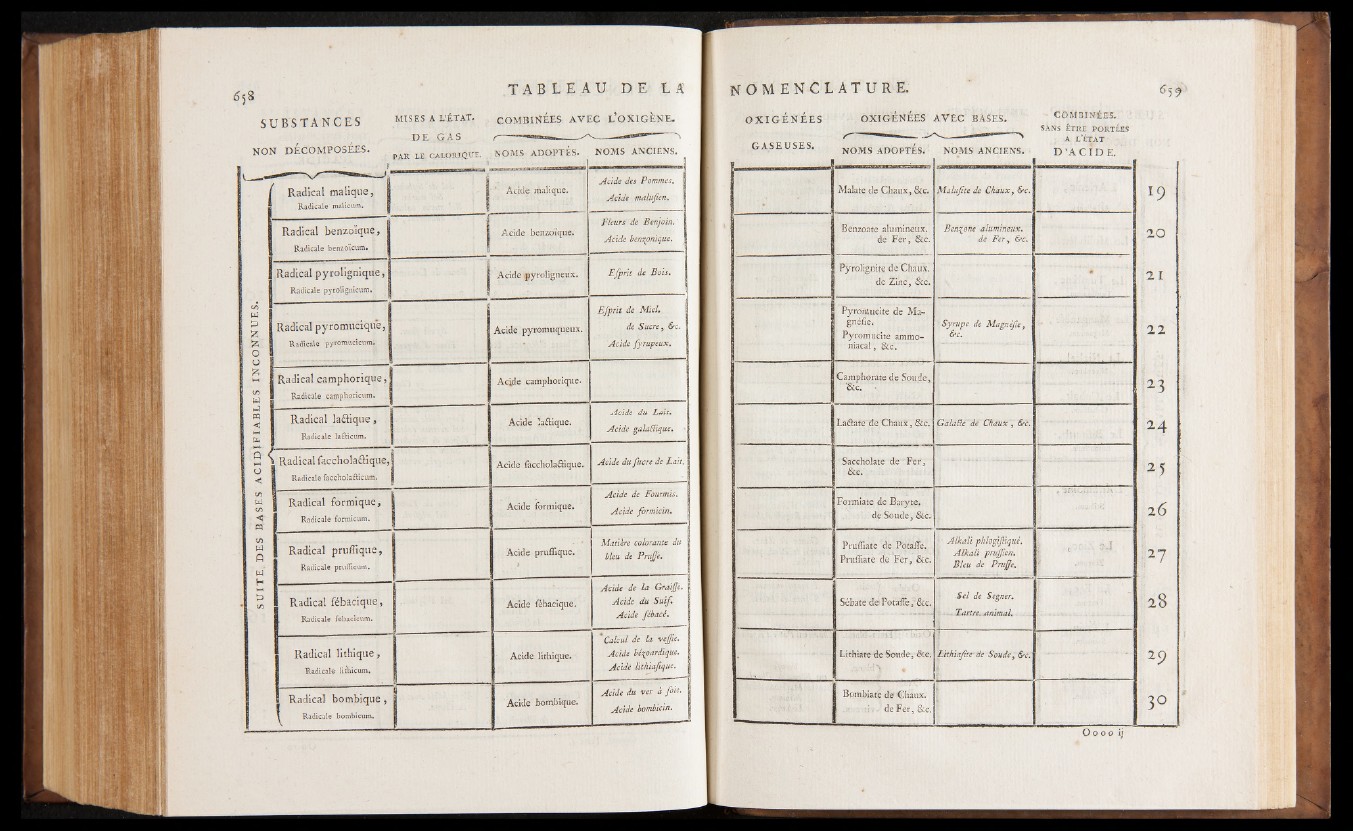 658
TABLEAU DE LA
SUBSTANCES
NON DÉCOMPOSÉES.
MISES A L'ÉTAT.
DE GAS
PAR LE CALORIQUE.
COMBINÉES AVEC L'OXIGÈNE.
NOMS ADOPTÉS.
NOMS ANCIENS.
SUITE DES BASES ACIDIFIABLES INCONNUES.
Radical malique,
Radicale malicum.
Acide malique.
Acide des Pommes.
Acide maluſien.
Radical benzoïque,
Radicale benzoïcum.
Acide benzoïque.
Fleurs de Benjoin.
Acide benzonique.
Radical pyrolignique,
Radicale pyrolignicum.
Acide pyroligneux.
Eſprit de Bois.
Radical pyromucique,
Radicale pyromucicum.
Acide pyromuqueux.
Eſprit de Miel.
de Sucre, &c.
Acide ſyrupeux.
Radical camphorique,
Radicale camphoricum.
Acide camphorique.
Radical lactique,
Radicale lacticum.
Acide lactique.
Acide du Lait.
Acide galactique.
Radical ſaccholactique,
Radicale ſaccholacticum.
Acide ſaccholactique.
Acide du ſucre de Lait.
Radical formique,
Radicale formicum.
Acide formique.
Acide de Fourmis.
Acide formicin.
Radical pruſſique,
Radicale pruſſicum.
Acide pruſſique.
Matière colorante du
bleu de Pruſſe.
Radical ſébacique,
Radicale ſebacicum.
Acide ſébacique.
Acide de la Graiſſe.
Acide du Suif.
Acide ſébacé.
Radical lithique,
Radicale lithicum.
Acide lithique.
Calcul de la veſſie.
Acide bézoardique.
Acide lithiaſique.
Radical bombique,
Radicale bombicum.
Acide bombique.
Acide du ver à ſoie.
Acide bombicin.
NOMENCLATURE.
659
OXIGÉNÉES
GASEUSES.
OXIGÉNÉES AVEC BASES.
NOMS ADOPTÉS.
NOMS ANCIENS.
COMBINÉES.
SANS ÊTRE PORTÉES
A L'ÉTAT
D'ACIDE.
Malate de Chaux, &c.
Maluſite de Chaux, &c.
19
Benzoate alumineux.
de Fer, &c.
Benzone alumineux.
de Fer, &c.
20
Pyrolignite de Chaux.
de Zinc, &c.
21
Pyromucite de Ma-
gnéſie.
Pyromucite ammo-
niacal, &c.
Syrupe de Magnéſie,
&c.
22
Camphorate de Soude,
&c.
23
Lactate de Chaux, &c.
Galacte de Chaux, &c.
24
Saccholate de Fer,
&c.
25
Formiate de Baryte.
de Soude, &c.
26
Pruſſiate de Potaſſe.
Pruſſiate de Fer, &c.
Alkali phlogiſtiqué.
Alkali pruſſien.
Bleu de Pruſſe.
27
Sébate de Potaſſe, &c.
Sel de Segner.
Tartre animal.
28
Lithiate de Soude, &c.
Lithiaſite de Soude, &c.
29
Bombiate de Chaux.
de Fer, &c.
30
Oooo ij